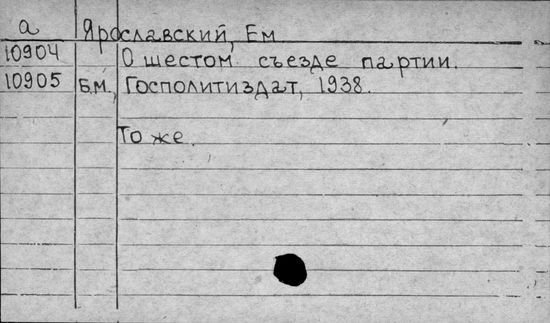 а Ярославский, Ем
10904 О шестом съезде партии.
10905 Б.М., Госполитиздат, 1938.
То же.